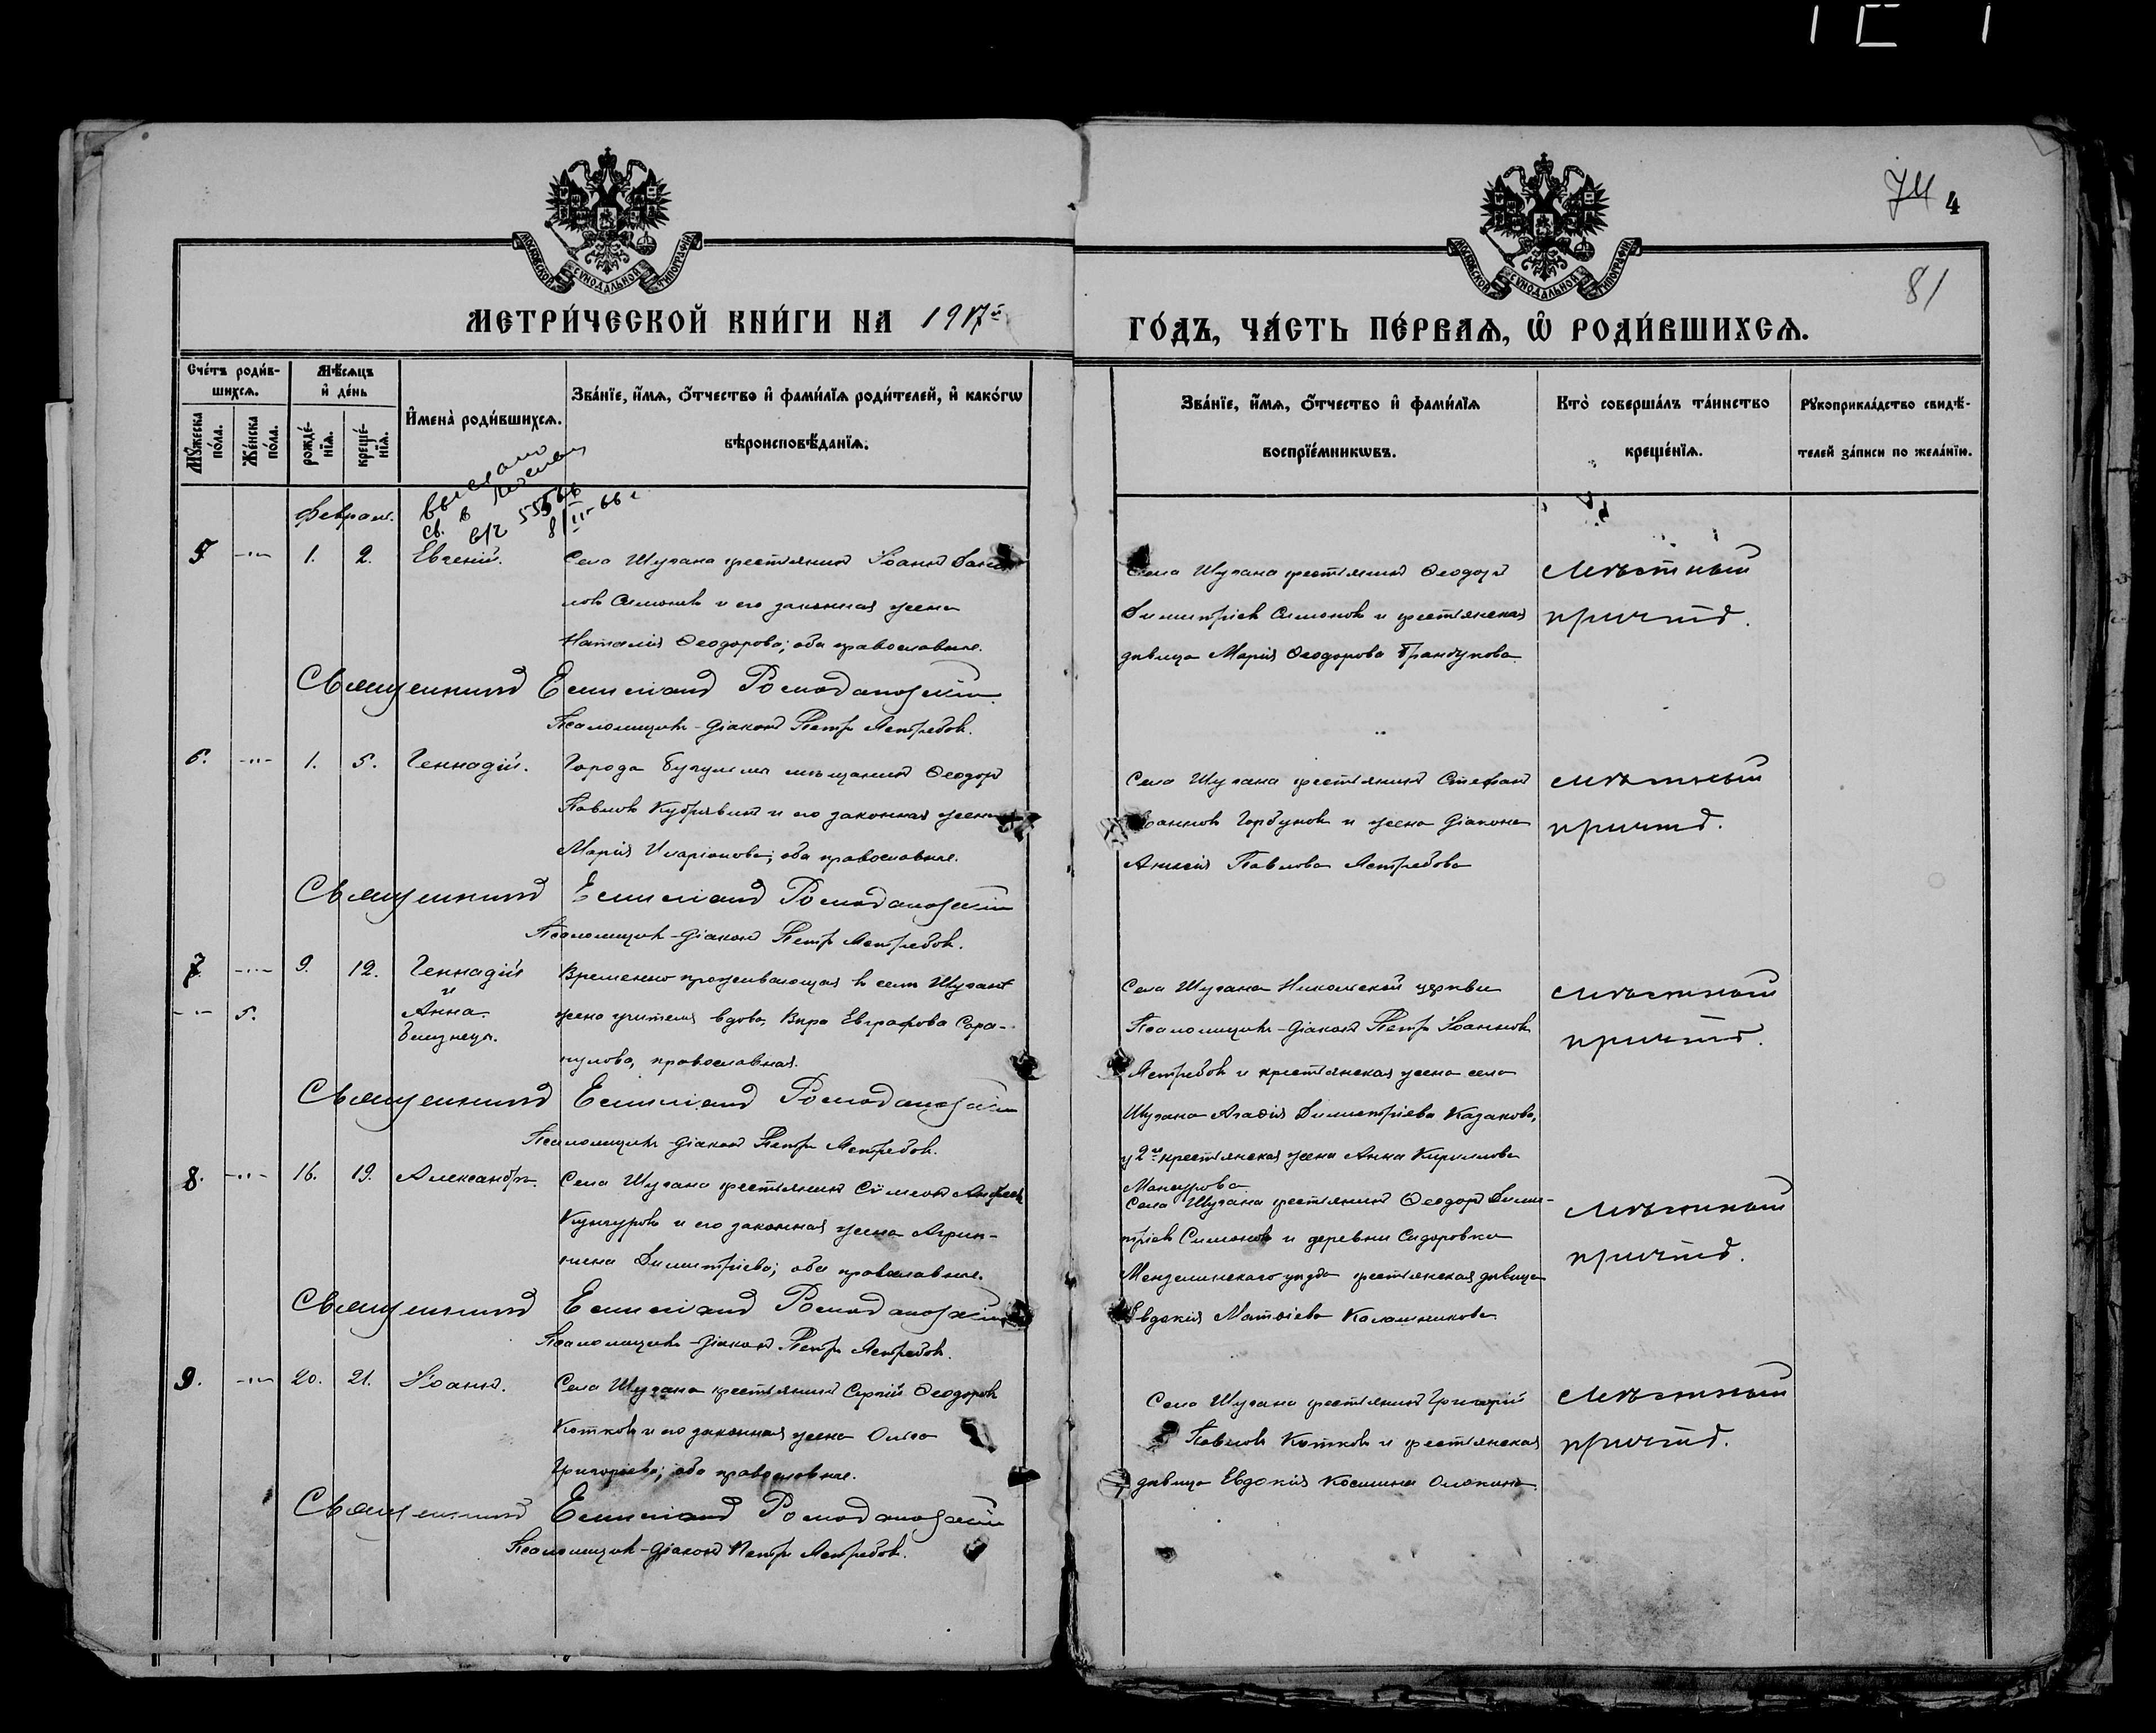 74 4
81
МОСКОВСКОЙ СѴНОДАЛЬНОЙ ТИПОГРАФІИ
МОСКОВСКОЙ СѴНОДАЛЬНОЙ ТИПОГРАФІИ
МЕТРИ́ЧЕСКОЙ КНИ́ГИ НА 1917й
ГО́ДЪ, ЧА́СТЬ ПЕ́РВАѦ, Ѽ РОДИ́ВШИХСѦ.
Сче́тъ роди́в-
шихсѧ.
Мꙋ́жеска по́ла.
Же́нска по́ла.
Мѣ́сѧцъ
и҆ де́нь
рожде́-
нїѧ.
креще́-
нїѧ.
И҆мена̀ роди́вшихсѧ.
Зва́нїе, и҆́мѧ, ѻ҆́тчество и҆ фами́лїѧ роди́телей, и҆ како́гѡ
вѣроисповѣ́данїѧ.
Зва́нїе, и҆́мѧ, ѻ҆́тчество и҆ фами́лїѧ
воспрїе́мникѡвъ.
Кто̀ соверша́лъ та́инство
креще́нїѧ.
Рꙋкоприкла́дство свидѣ́-
телей за́писи по жела́нїю.
Феврал.
выслано
св. в
5 -"- 1. 2. Евгеній. Села Шугана крестьянинъ Іоаннъ Дани-
ловъ Симоновъ и его законная жена
Наталія Ѳеодорова; оба православные.
Священникъ Емиліанъ Ромодановскій
Псаломщикъ-діаконъ Петръ Ястребовъ.
Села Шугана крестьянинъ Ѳеодоръ
Димитріевъ Симоновъ и крестьянская
дѣвица Марія Ѳеодорова
Мѣстный
причтъ.
6. -"- 1. 5. Геннадій. Города Бугульмы мѣщанинъ Ѳеодоръ
Павловъ и его законная жена
Марія Иларіонова; оба православные.
Священникъ Емиліанъ Ромодановскій
Псаломщикъ-діаконъ Петръ Ястребовъ.
Села Шугана крестьянинъ Стефанъ
Іоанновъ Горбуновъ и жена діакона
Анисія Павлова Ястребова
Мѣстный
причтъ.
7. -"- 9. 12. Геннадій Временно проживающая въ селѣ Шуганѣ
и
-"- 5. Анна жена учителя вдова, Вѣра Евграфова Сара-
близнецы.
пулова, православная.
Священникъ Емиліанъ Ромодановскій
Псаломщикъ-діаконъ Петръ Ястребовъ.
Села Шугана Никольской церкви
Псаломщикъ-діаконъ Петръ Іоанновъ
Ястребовъ и крестьянская жена села
Шугана Агафія Димитріева Казакова,
у 2й крестьянская жена Анна Кириллова
Мансурова
Мѣстный
причтъ.
8. -"- 16. 19. Александръ. Села Шугана крестьянинъ Сѵмеонъ
Кунгуровъ и его законная жена Агрип-
пина Димитріева; оба православные.
Священникъ Емиліанъ Ромодановскій
Псаломщикъ-діаконъ Петръ Ястребовъ.
Села Шугана крестьянинъ Ѳеодоръ Дими-
тріевъ Симоновъ и деревни Сидоровки
Мензелинскаго уѣзда крестьянская дѣвица
Евдокія Матѳіева Коломникова
Мѣстный
причтъ.
9. -"- 20. 21. Іоаннъ. Села Шугана крестьянинъ Сергій Ѳеодоровъ
Котковъ и его законная жена Ольга
Григоріева; оба православные.
Священникъ Емиліанъ Ромодановскій
Псаломщикъ-діаконъ Петръ Ястребовъ.
Села Шугана крестьянинъ Григорій
Павловъ Котковъ и крестьянская
дѣвица Евдокія Космина
Мѣстный
причтъ.